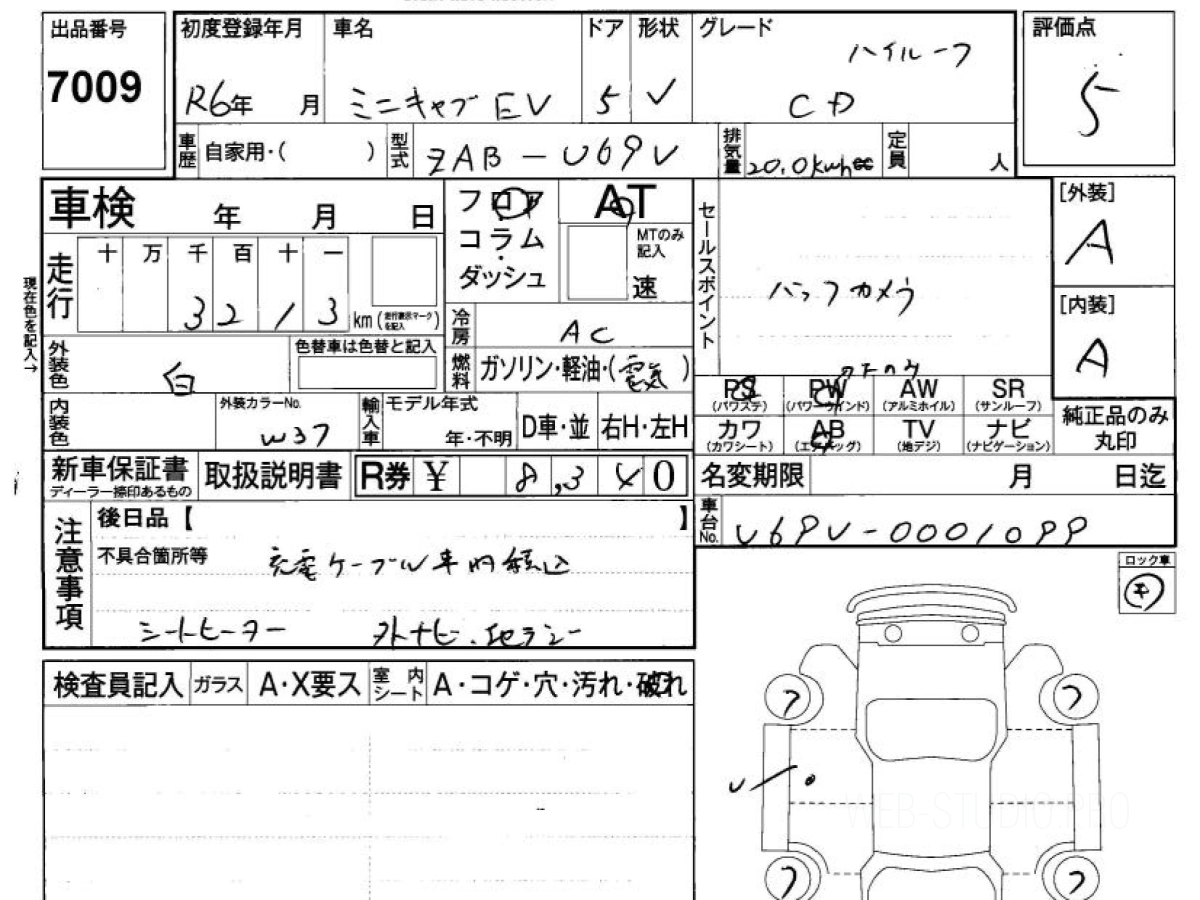 出品番号 初度登録年月 車名 ドア 形状 グレード 評価点
7009 R6年 月 ミニキャブ EV 5 V ハイルーフ CD 5
車歴 自家用・( ) 型式 ZAB-U69V 排気量 20.0kwh 定員 人
車検 年 月 日 フロア AT セールスポイント [外装]
コラム MTのみ記入 A
ダッシュ 速
走行 十 万 千 百 十 一
3 2 1 3 km (走行表示マークを記入) バックカメラ [内装]
現在色を記入→ 冷房 AC A
外装色 白 色替車は色替と記入 燃料 ガソリン・軽油・(電気)
PS (パワステ) PW (パワーウインド) AW (アルミホイル) SR (サンルーフ)
内装色 外装カラーNo. W37 輸入車 モデル年式 年・不明 D車・並 右H・左H
カワ (カワシート) AB (エアバッグ) TV (地デジ) ナビ (ナビゲーション) 純正品のみ丸印
新車保証書 ディーラー捺印あるもの 取扱説明書 R券 ¥ 8,3 4 0 名変期限 月 日迄
注意事項 後日品【 】 車台No. U69V-0001099
不具合箇所等 充電ケーブル車内積込
シートヒーター 外ナビ・地デジ
ロック車
検査員記入 ガラス A・X要ス 室内シート A・コゲ・穴・汚れ・破れ
WEB-STUDIO.PRO